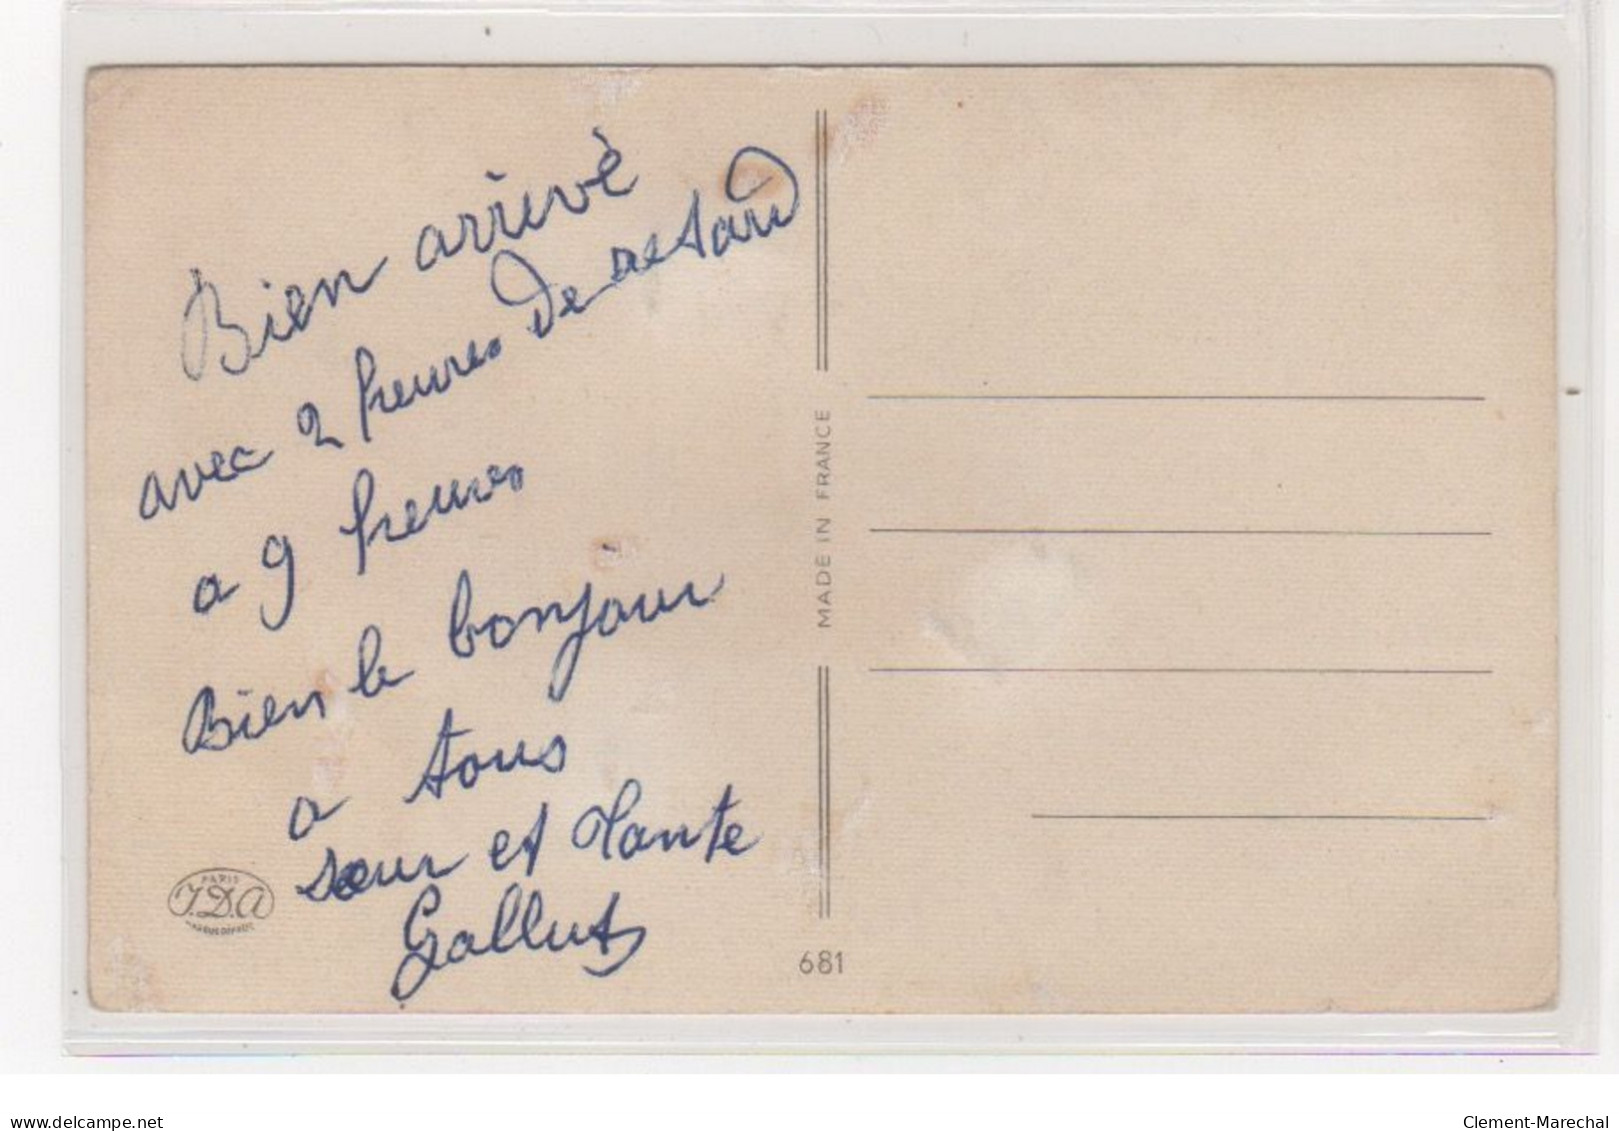 Bien arrivè
avec 2 heures de retard
a 9 heures
Bien le bonjour
a tous
sœur et tante
Gallut
PARIS
J.D.A
MARQUE DÉPOSÉE
MADE IN FRANCE
681
delcampe.net
Clement-Marechal